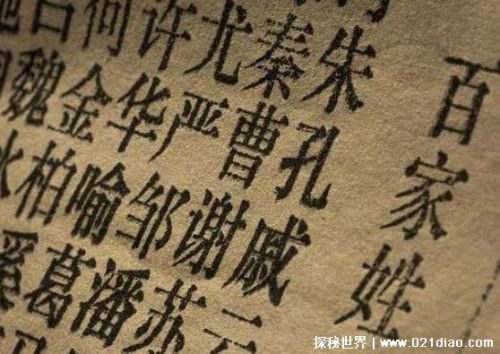 百家姓
朱秦尤许何吕
孔曹严华金魏
戚谢邹喻柏水
云苏潘葛奚
探秘世界 // www.021diao.com